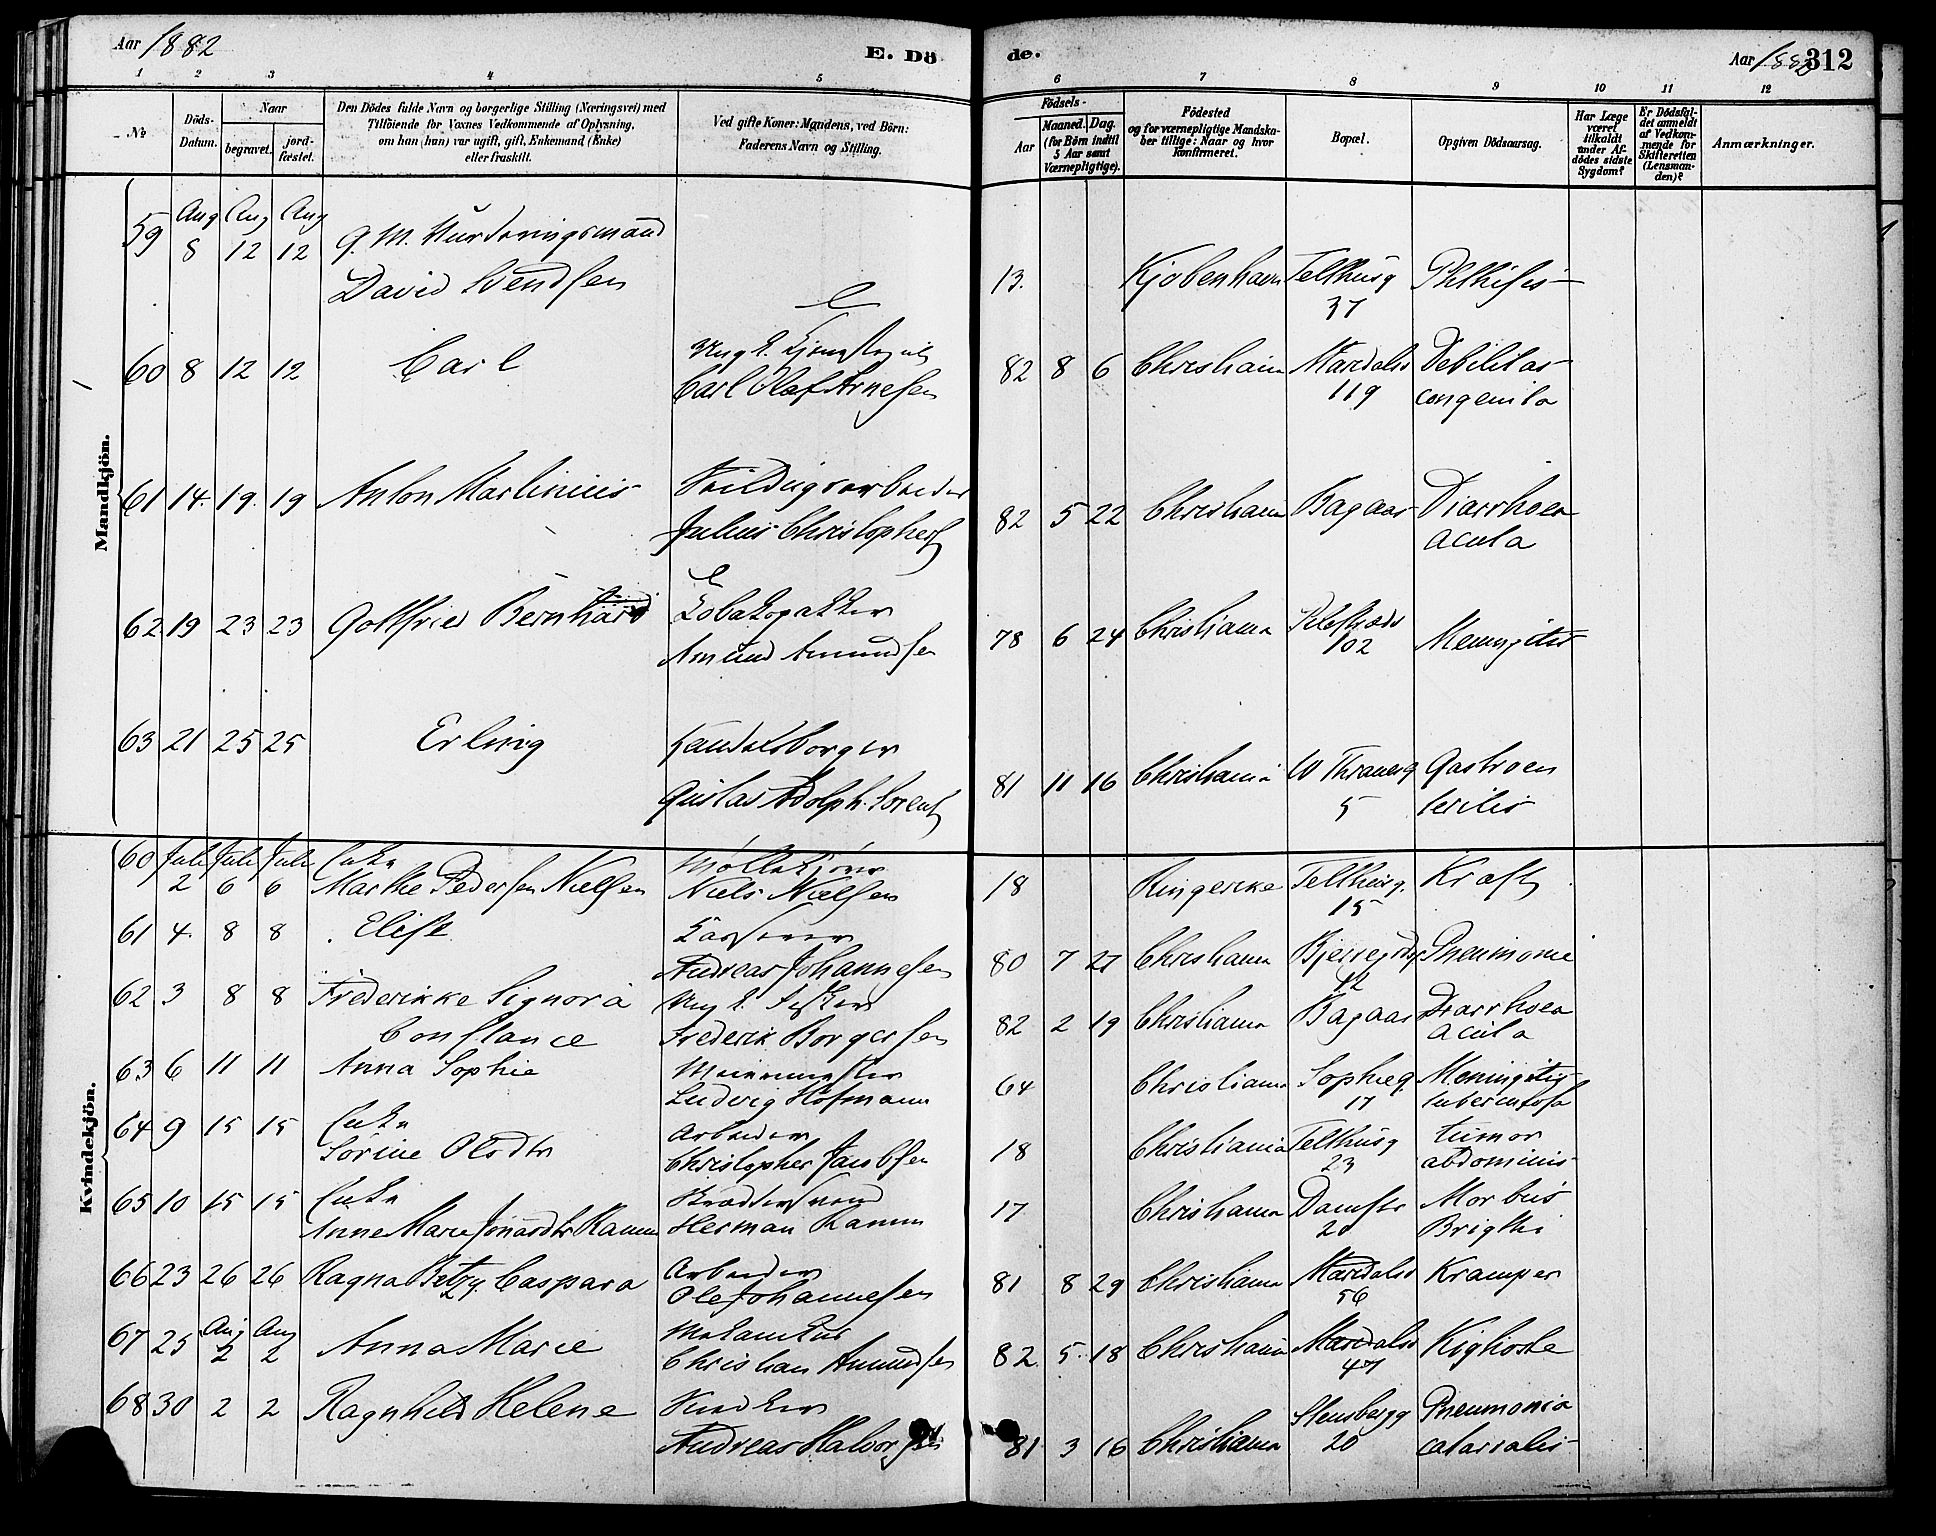 Aar 1882
E. Dö
de.
Aar 1882 312
1 2 3 4 5 6 7 8 9 10 11 12
No
Döds-Datum.
Naar
begravet. jord-fæstet.
Den Dödes fulde Navn og borgerlige Stilling (Næringsvei) med
Tilföiende for Voxnes Vedkommende af Oplysning,
om han (hun) var ugift, gift, Enkemand (Enke)
eller fraskilt.
Ved gifte Koner: Mandens, ved Börn:
Faderens Navn og Stilling.
Födsels-
Aar Maaned. Dag.
(for Börn indtil
5 Aar samt
Værnepligtige).
Födested
og for værnepligtige Mandska-
ber tillige: Naar og hvor
Konfirmeret.
Bopæl.
Opgiven Dödsaarsag.
Har Læge
været
tilkaldt
under Af-
dödes sidste
Sygdom?
Er Dödsfal-
det anmeldt
af Vedkom-
mende for
Skifteretten
(Lensman-
den)?
Anmærkninger.
Mandkjön.
Aug Aug Aug
59 8 12 12 G. M.
David Svendsen 13. Kjøbenhavn Telthusg Phthisis
37
60 8 12 12 Carl
Carl Olaf Arnesen 82 8 6 Christiania Maridalsv Debilitas
119 congenita
61 14. 19. 19 Anton Martinius
Julius Christophers 82 5 22 Christiania Bagaas Diarrhoea
acuta
62 19 23 23 Gottfried Bernhard Tobakspakker
Amund Amundsen 78 6 24 Christiania Pilestræde Meningitis
102
63 21 25 25 Erling Handelsborger
Gustav Adolph Lorents 81 11 16 Christiania W Thranesg Gastroen
5 teritis
Kvindekjön.
60 Juli Juli Juli Enke Møllekjører
2 6 6 Marthe Pedersen Nielsen Niels Nielsen 18 Ringerike Telthusg. Kræft
15
61 4. 8 8 Elise
Andreas Johannesen 80 7 27 Christiania Bjerregdsg Pneumonie
42
62 3 8 8 Frederikke Signora Ung k.
Constance Frederik Borgersen 82 2 19 Christiania Bagaas Diarrhoea
acuta
63 6 11 11 Anna Sophie Murmester
Ludvig Hofmann 64 Christiania Sophieg. Meningitis
17 tuberculosa
64 9 15 15 Enke Arbeider
Sörine Olsdtr Christopher Jacobsen 18 Christiania Telthusg tumor
23 abdominis
65 10 15 15 Enke
Anne Marie Jonasdtr Ramm Herman Ramm 17 Christiania Damstr Morbus
20 Brigthi
66 23 26 26 Ragna Betzy Caspara Arbeider
Ole Johannesen 81 8 29 Christiania Maridalsv Kramper
56
Aug Aug
67 25 2 2 Anna Marie Mekanikus
Christian Amundsen 82. 5. 18 Christiania Maridalsv Kighoste
47
68 30 2 2 Ragnhild Helene Snedker
Andreas Halvorsen 81 3 16 Christiania Stensbergg Pneumonia
20 catarralis